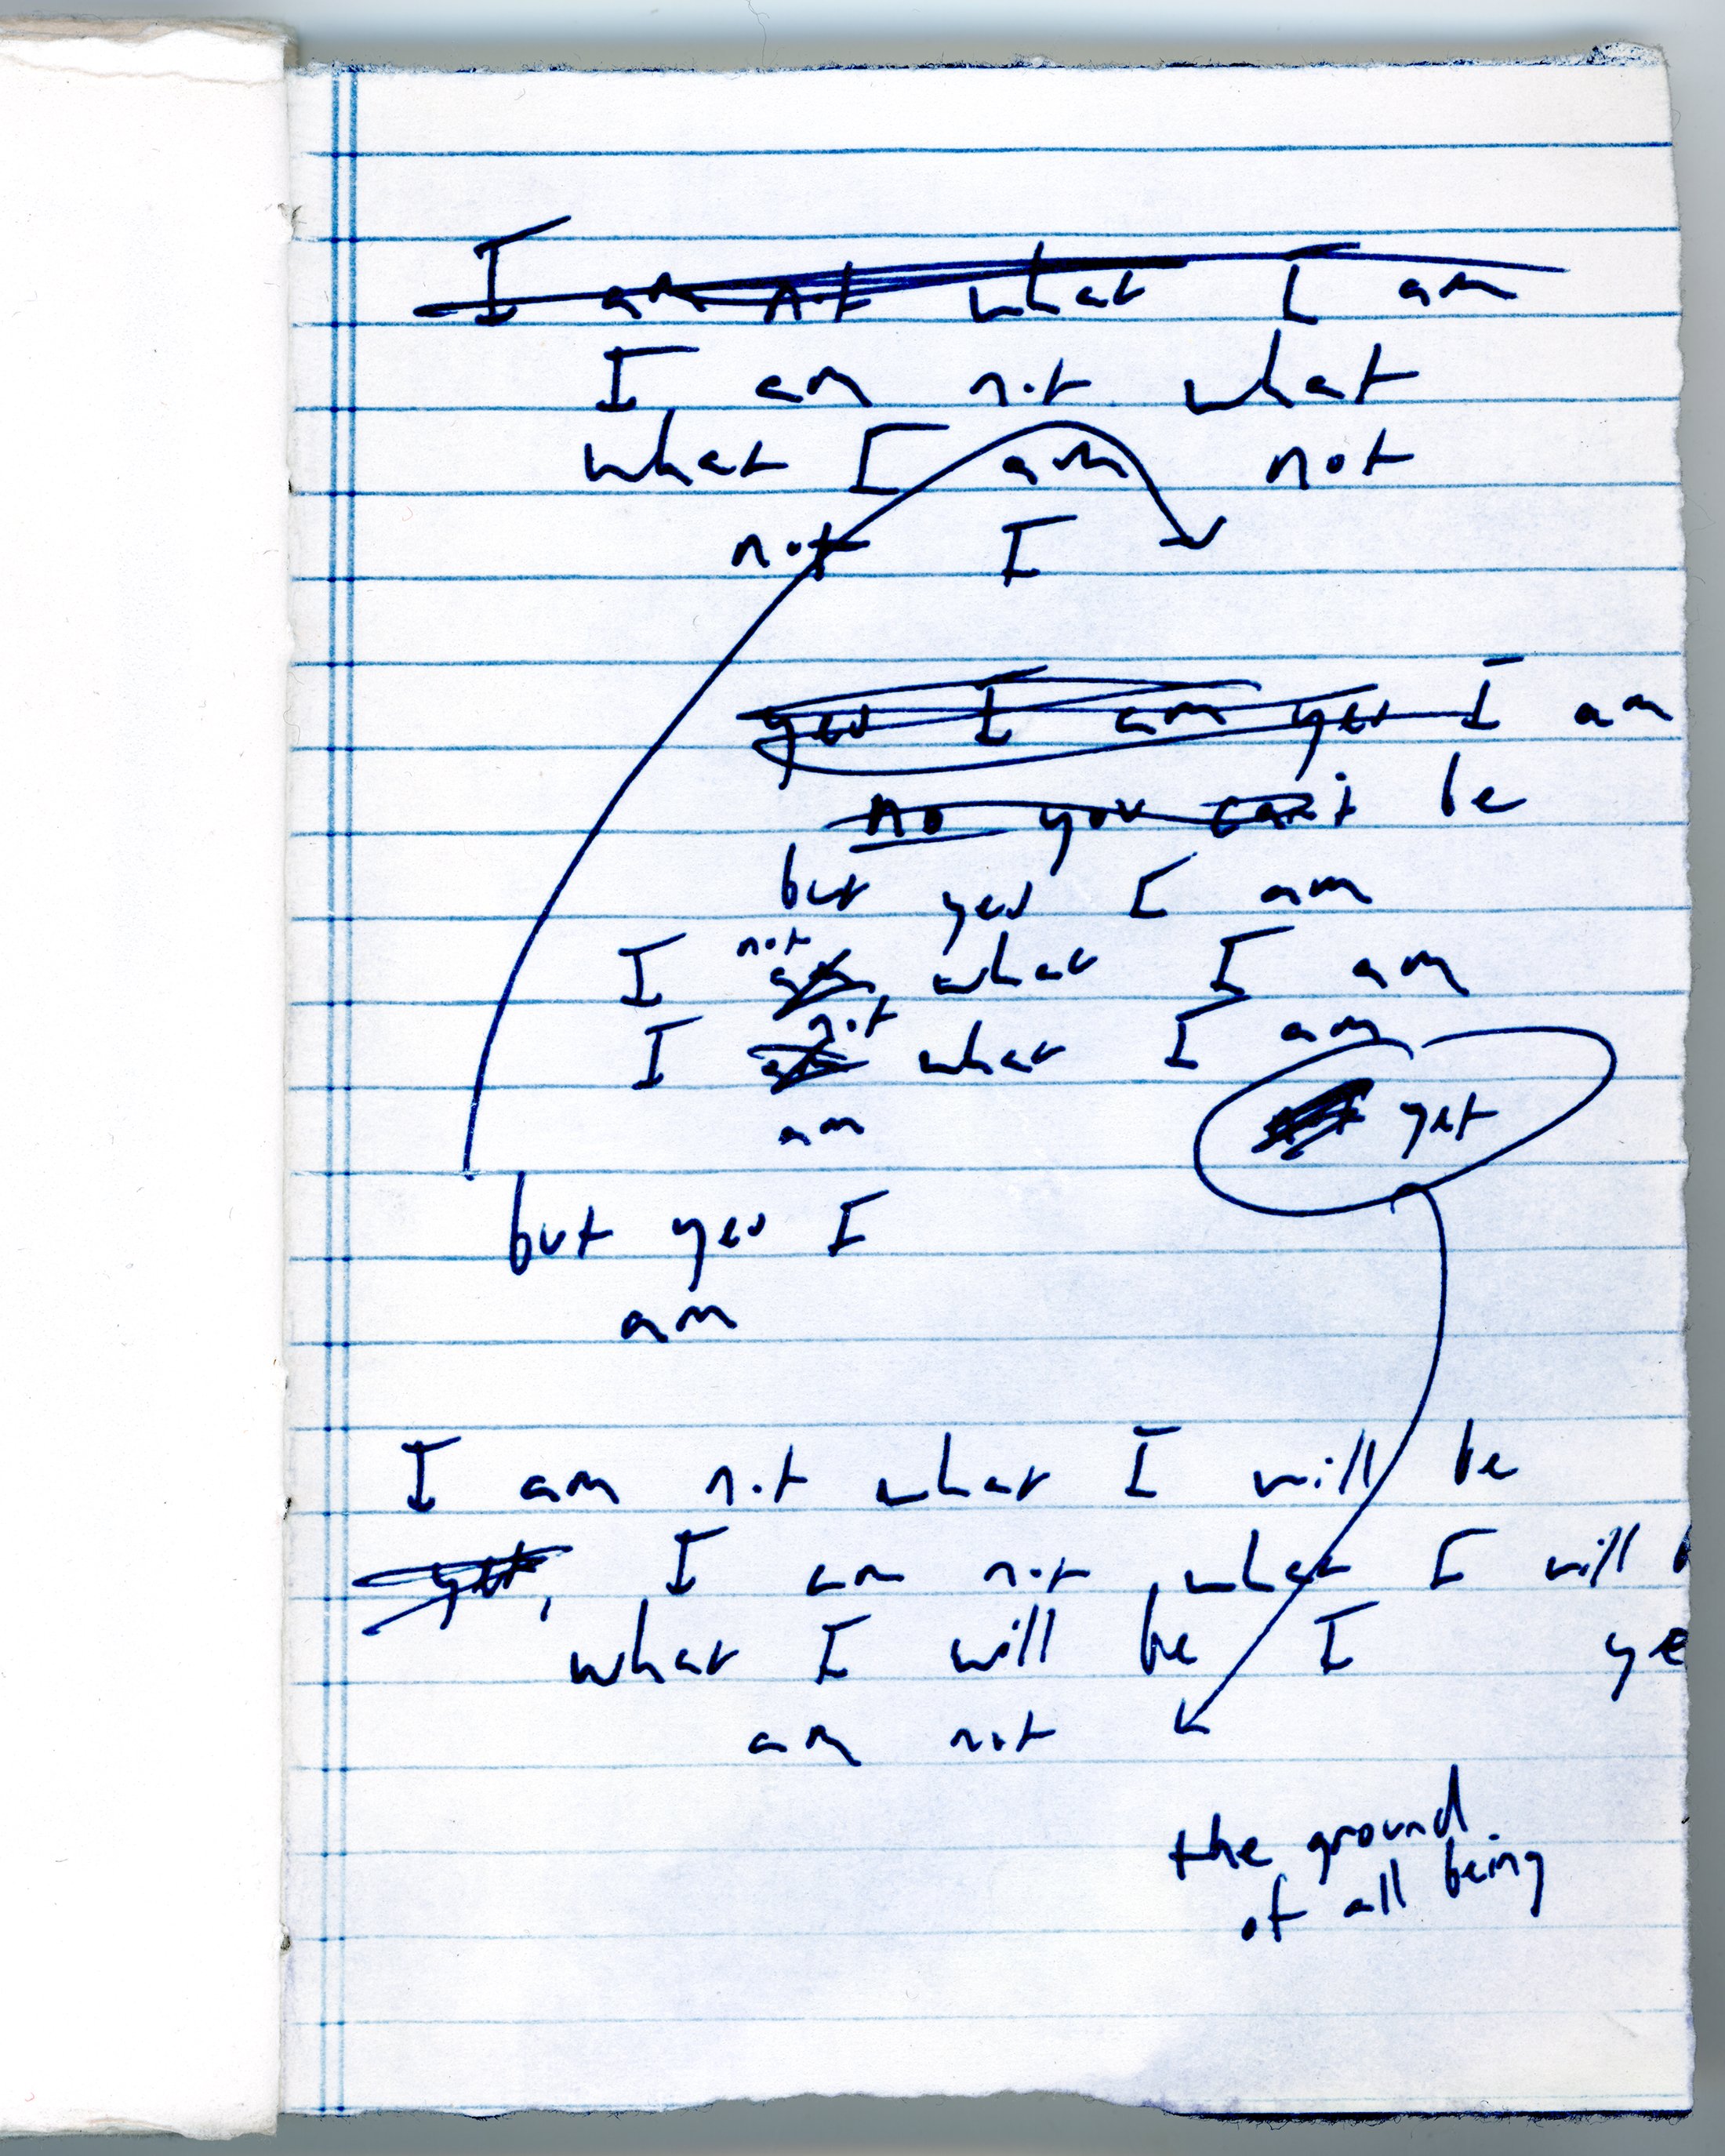 I am not what I am
I am not what
what I am not
not I
yes I am yes I am
no you can't be
but yes I am
not
I am, what I am
not
I what I am
am
yet
but yes I
am
I am not what I will be
yet, I am not, what I will
what I will be I
am not
the ground
of all being